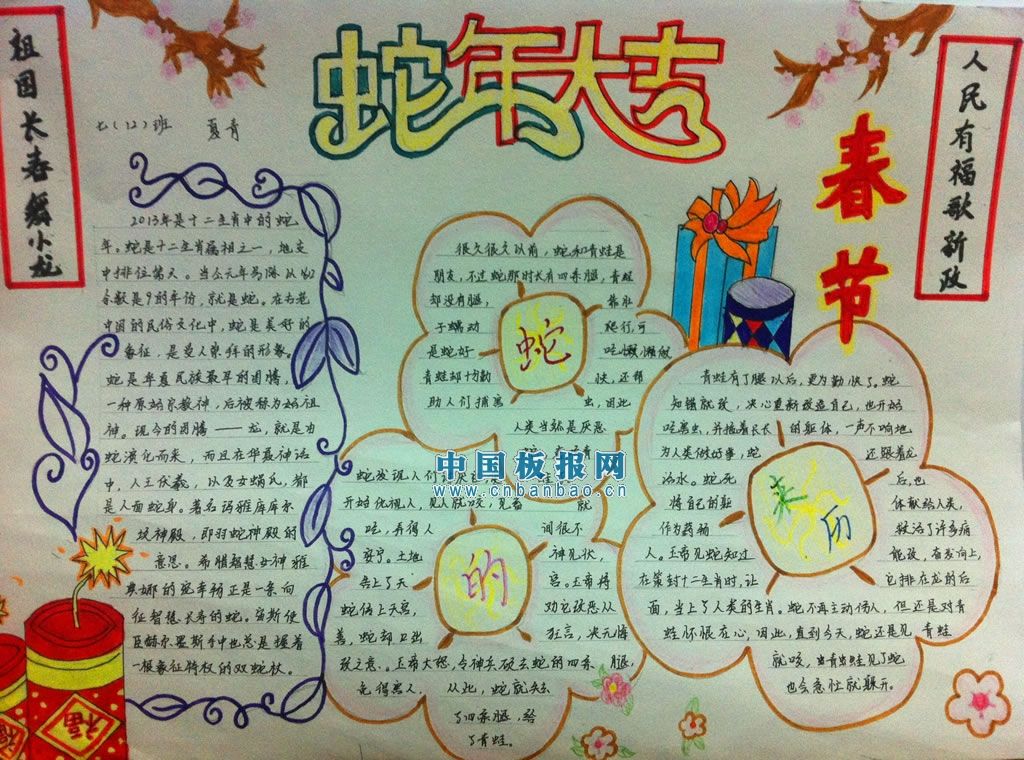 祖国长春骊小龙
蛇年大吉
七(12)班 夏青
春节
人民有福歌新政
2013年是十二生肖中的蛇
年。蛇是十二生肖属相之一，地支
中排位第六。当公元年号除以12
余数是9的年份，就是蛇。在古老
中国的民俗文化中，蛇是美好的
象征，是受人崇拜的形象。
蛇是华夏民族最早的图腾，
一种原始宗教神，后被称为始祖
神。现今的图腾——龙，就是由
蛇演化而来，而且在华夏神话
中，人王伏羲，以及女娲氏，都
是人面蛇身。著名玛雅库库尔
坎神殿，即羽蛇神殿的
意思。希腊智慧女神雅
典娜的宠幸物正是一条向
征智慧长寿的蛇。宙斯使
臣赫尔墨斯手中也总是握着
一根象征特权的双蛇杖。
很久很久以前，蛇和青蛙是
朋友，不过蛇那时长有四条腿，青蛙
却没有腿， 靠肚
子蠕动 爬行，可
是蛇好 吃懒做
青蛙却十分勤 快，还帮
助人们捕害 虫，因此
人类当然是厌恶
蛇
蛇发现人们
开始仇视人，见人就咬，见畜 就
吃，弄得人 间很不
安宁。土地 神见状
告上了天 宫。玉帝将
蛇传上天宫， 劝它改恶从
善，蛇却口出 狂言，决无悔
改之意。玉帝大怒，令神兵砍去蛇的四条 腿，
免得害人。 从此，蛇就失去
了四条腿，给
了青蛙。
的
青蛙有了腿以后，更为勤快了。蛇
知错就改，决心重新改造自己，也开始
吃害虫，并拖着长长 的躯体，一声不响地
为人类做好事，蛇 还跟着龙
治水。蛇死 后，也
将自己的躯 体献给人类，
作为药物 救治了许多病
人。玉帝见蛇知过 能改，奋发向上，
在策封十二生肖时，让 它排在龙的后
面，当上了人类的生肖。蛇不再主动伤人，但还是对青
蛙怀恨在心，因此，直到今天，蛇还是见 青蛙
就咬，当青蛙见了蛇
也会急忙就躲开。
来历
福
中国板报网
www.cnbanbao.cn